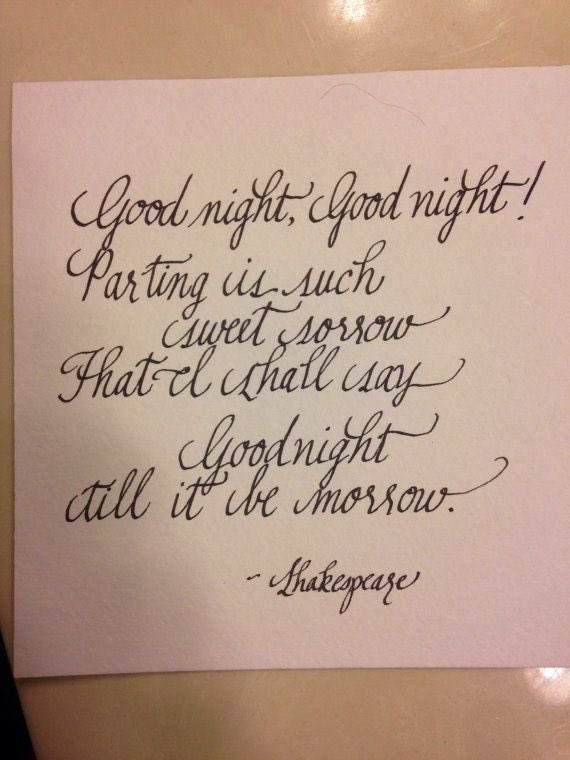 Good night, Good night!
Parting is such
sweet sorrow
That I shall say
Goodnight
till it be morrow.
- Shakespeare